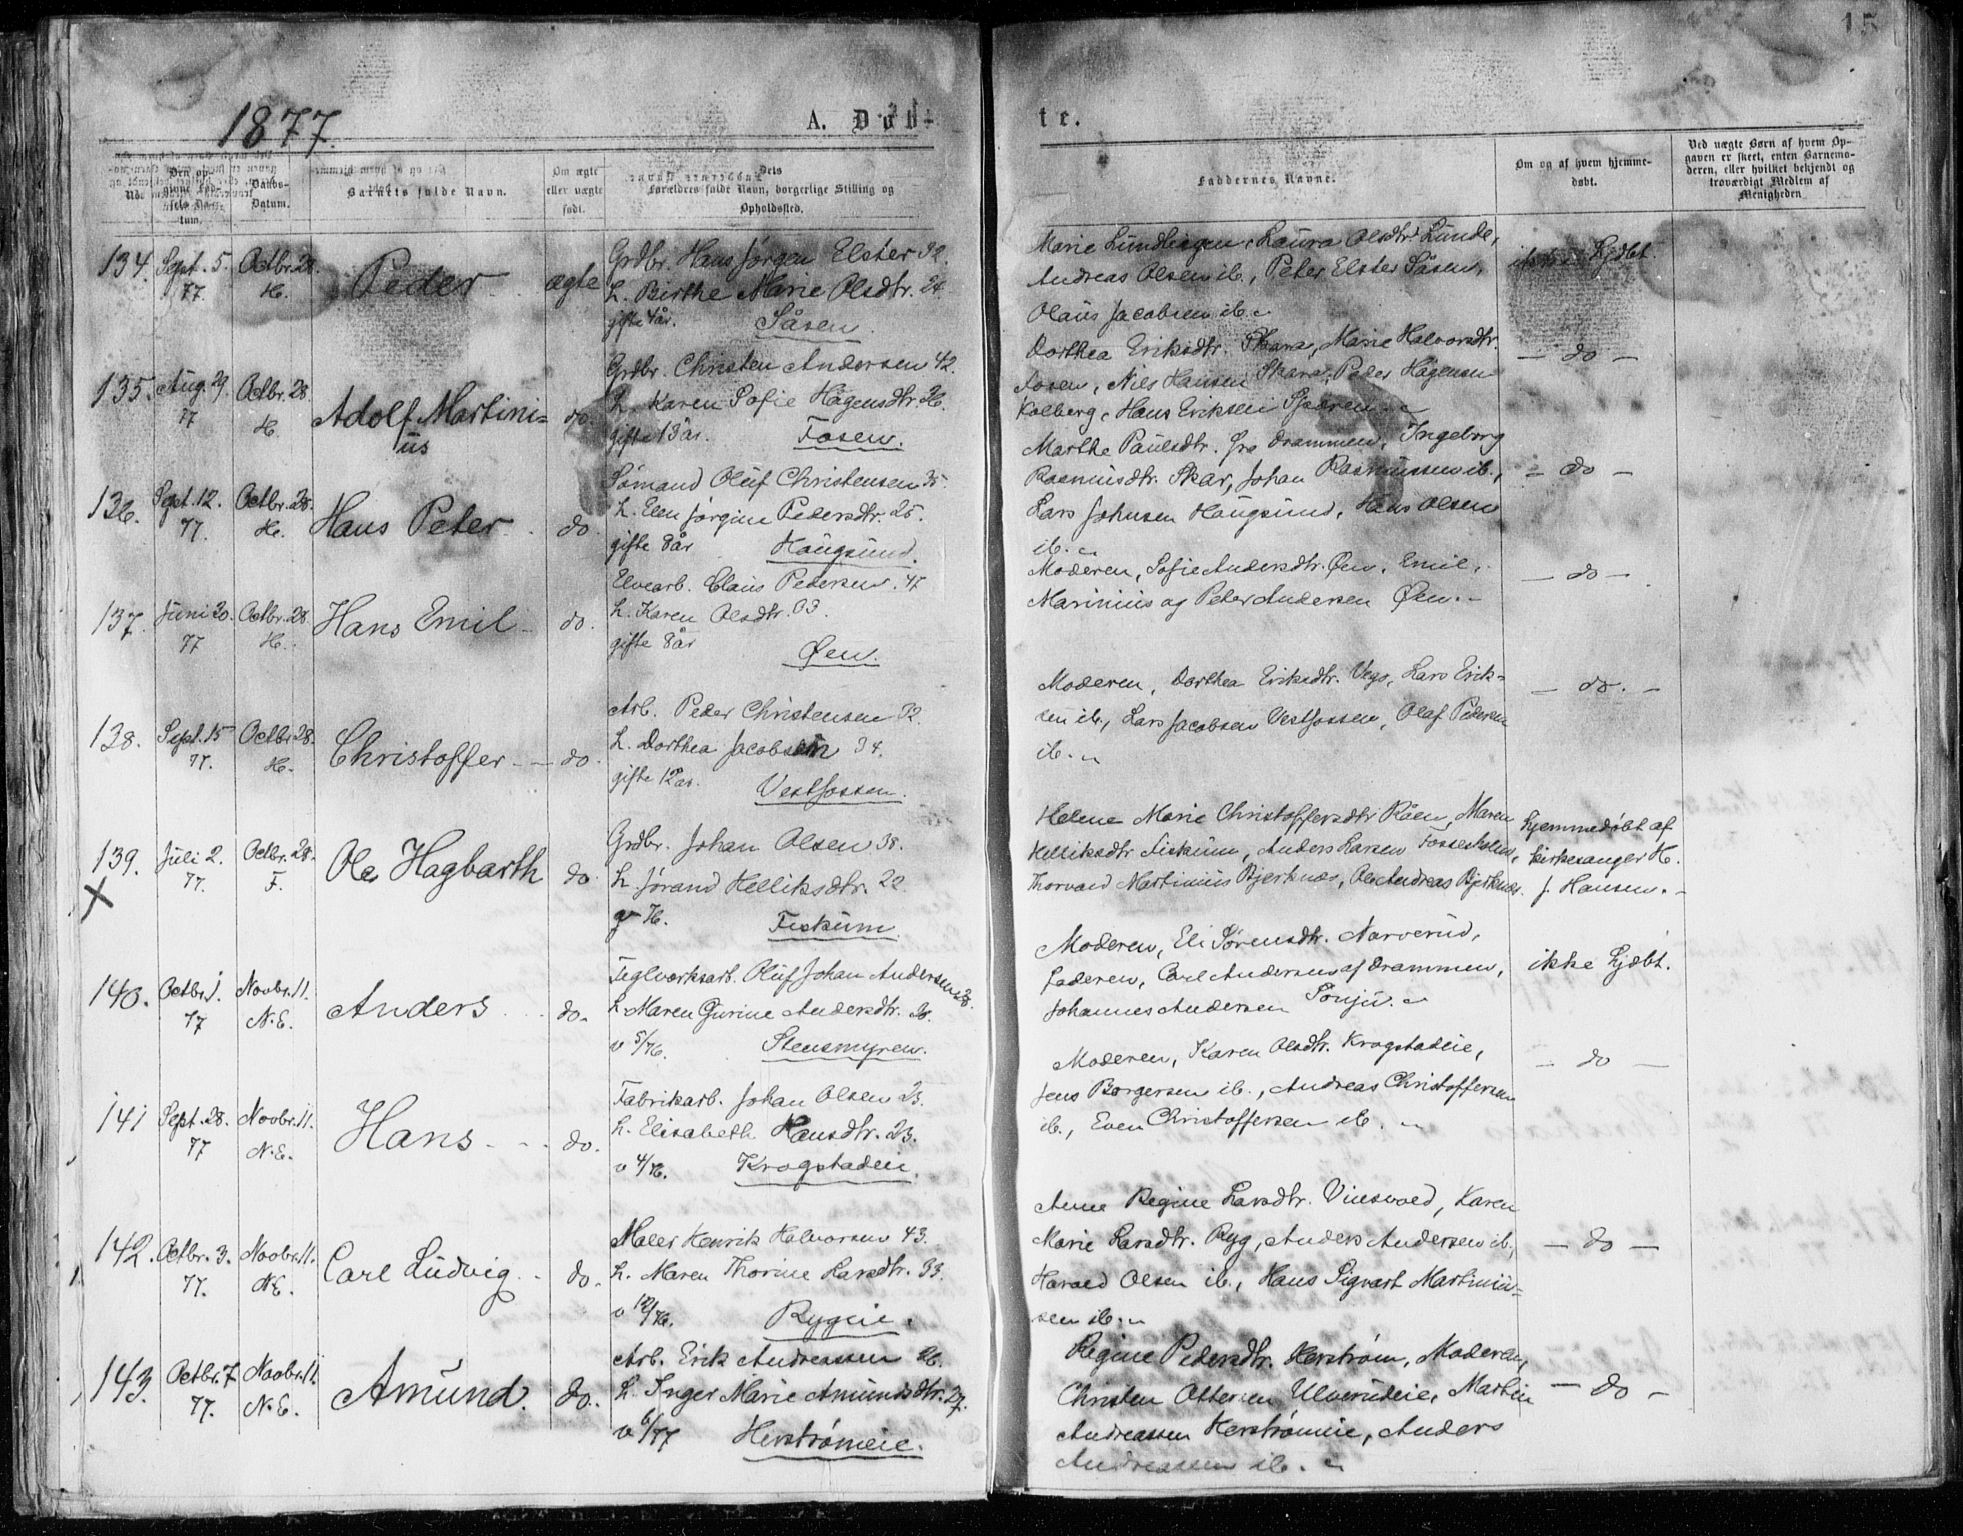 15
1877.
A. Døb-
te.
Barnets fulde Navn.
Døbs-
Datum.
Om ægte
eller uægte
født.
Dets
Forældres fulde Navn, borgerlige Stilling og
Opholdssted.
Faddernes Navne.
Om og af hvem hjemme-
døbt.
Ved uægte Børn af hvem Op-
gaven er skeet, enten Barnemo-
deren, eller hvilket bekjendt og
troværdigt Medlem af
Menigheden
134. Sept. 5. 77 Octbr. 28. H. Peder ægte
Grdbr. Hans Jørgen Elster 32.
h. Birthe Marie Olsdtr. 24
gifte 4 år. Såsen.
Laura Olsdtr. Lunde,
Andreas Olsen ib., Peter Elster Såsen,
Olaus Jacobsen ib.
ikke hjdbt.
135. Aug. 29 77 Octbr. 28. H. Adolf Martini=
us do.
Grdbr. Christen Andersen 42.
h. Karen Sofie Hågensdtr.
gifte 13 år. Fosen.
Dorthea Eriksdtr. Skara, Marie Halvorsdtr.
Fosen, Nils Hansen Skara, Peder Hågensen
Kolberg, Hans Eriksen
— do —
136. Sept. 12. 77. Octbr. 28. H. Hans Peter do
Sømand Oluf Christensen 35.
h. Elen Jørgine Pedersdtr. 25.
gifte 8 år Haugsund.
Marthe Paulsdtr. fra Drammen, Ingeborg
Rasmusdtr. Skar, Johan Rasmussen ib.,
Lars Johnsen Haugsund, Hans Olsen
ib.
— do —
137. Juni 20. 77 Octbr. 28. H. Hans Emil do.
Elvearb. Claus Pedersen. 47
h. Karen Olsdtr. 33.
gifte 8 år Øen.
Moderen, Sofie Andersdtr. Øen, Emil,
Marinius og Peter Andersen Øen.
— do —
138. Sept. 15 77. Octbr 28. H. Christoffer do
Arb. Peder Christensen 32.
h. Dorthea Jacobsen 34.
gifte 12 år. Vestfossen.
Moderen, Dorthea Eriksdtr. Vego, Lars Erik=
sen ib., Lars Jacobsen Vestfossen, Olaf Pedersen
ib.
— do. —
139. Juli 2. 77. Octbr. 28. F. Ole Hagbarth do.
X
Grdbr. Johan Olsen 38.
h. Jørand Helliksdtr. 22
Fiskum
Helene Marie Christoffersdtr Råen, Maren
Helliksdtr Fiskum, Anders Larsen Fossesholm,
Thorvald Martinius Bjerknæs, Ole Andreas Bjerknæs.
hjemmedøbt af
kirkesanger H.
J. Hansen.
140. Octbr. 1. 77 Novbr. 11. N.E. Anders do.
Teglværksarb. Oluf Johan Andersen 28.
h. Maren Gurine Andersdtr.
v 5/76. Stensmyren.
Moderen, Eli Sørensdtr. Narverud,
Faderen, Carl Andersen af Drammen,
Johannes Andersen
ikke hjdbt.
141 Sept. 28. 77 Novbr. 11. N.E. Hans do.
Fabrikarb. Johan Olsen 23.
h. Elisabeth Hansdtr. 23.
v 4/76. Krogstadeie.
Moderen, Karen Olsdtr. Krogstadeie,
Jens Borgersen ib., Andreas Christoffersen
ib., Even Christoffersen ib.
— do —
142. Octbr. 3. 77. Novbr. 11. N.E. Carl Ludvig do.
Maler Henrik Halvorsen 43.
h. Maren Thorine Larsdtr. 33.
v 12/76. Rygeie.
Anne Regine Larsdtr. Vinsvold, Karen
Marie Larsdtr. Ryg, Anders Andersen ib.,
Harald Olsen ib., Hans Sigvart Martiniu=
sen ib.
— do —
143. Octbr. 7 77. Novbr. 11. N.E. Amund. do.
Arb. Erik Andreassen 26.
h. Inger Marie Amundsdtr. 27.
v 6/77 Herstrømeie.
Regine Pedersdtr. Herstrøm, Moderen,
Christen Ottersen Ulverudeie, Martin
Andreassen Herstrømeie, Anders
Andreassen ib.
— do —